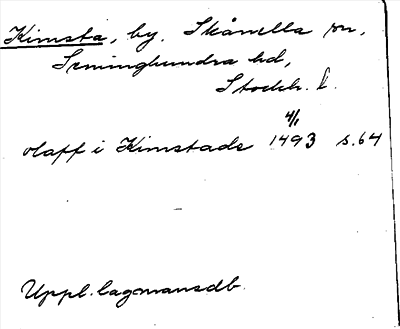 Kimsta, by. Skånella sn,
Seminghundra hd,
Stockh. l.
4/1
olaff i Kimstade 1493 s. 64
Uppl. lagmansdb.